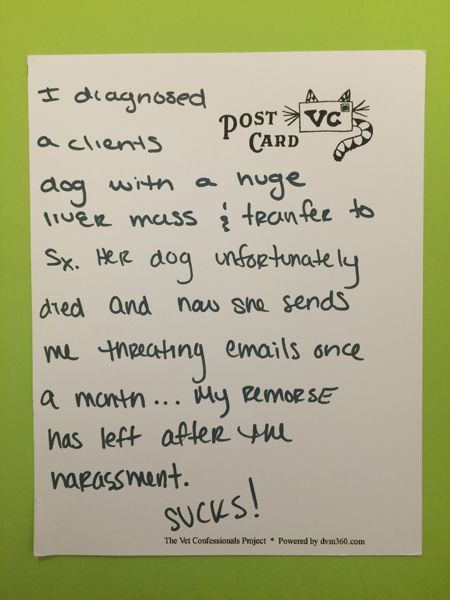 I diagnosed
POST CARD
VC
a clients
dog with a huge
liver mass & tranfer to
Sx. Her dog unfortunately
died and now she sends
me threating emails once
a month... My remorse
has left after the
harassment.
SUCKS!
The Vet Confessionals Project * Powered by dvm360.com